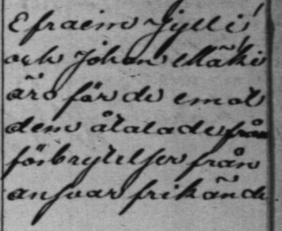 Efraim Jylli
och Johan Mäki
äro för de emot
dem åtalade från
förbrytelser från
ansvar frikände